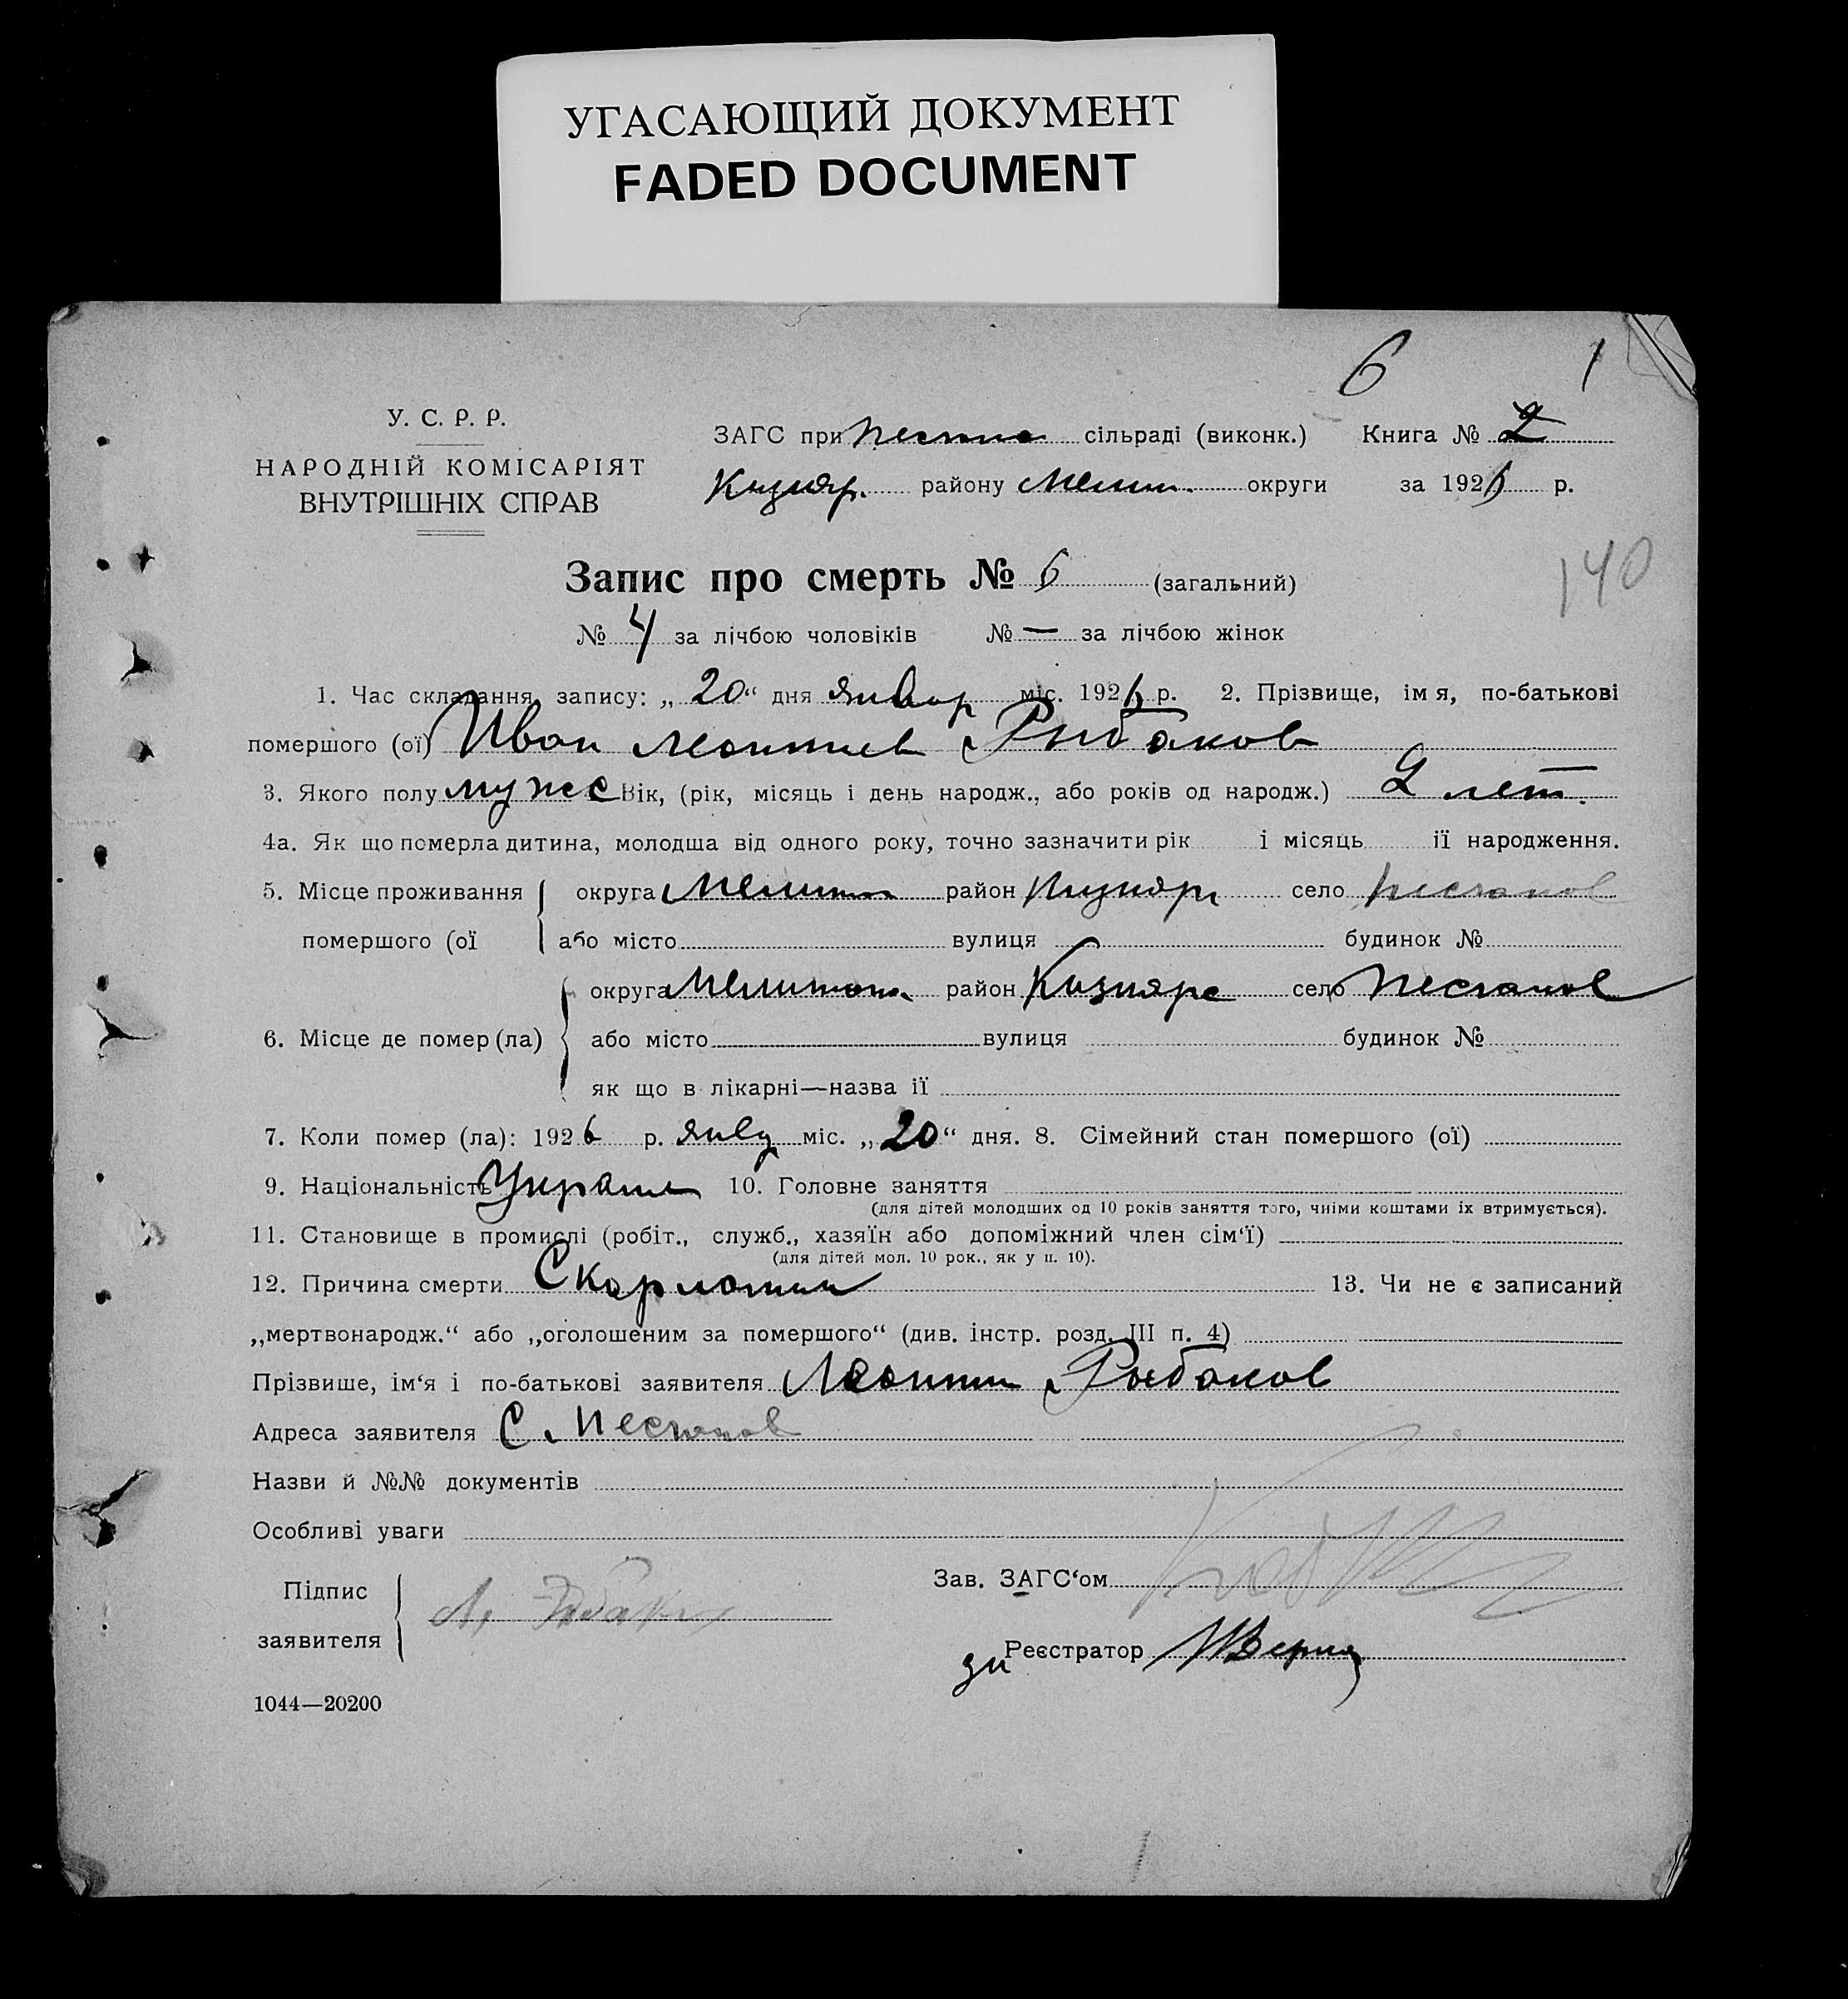 УГАСАЮЩИЙ ДОКУМЕНТ
FADED DOCUMENT
6 1
У. С. Р. Р.
НАРОДНІЙ КОМІСАРІЯТ
ВНУТРІШНІХ СПРАВ
ЗАГС при сільраді (виконк.) Книга № 2
району Мелит. округи за 1926 р.
Запис про смерть № 6 (загальний)
140
№ 4 за лічбою чоловіків № — за лічбою жінок
1. Час складання запису: „ 20 “ дня январ міс. 1926 р. 2. Прізвище, імя, по-батькові
помершого (ої) Иван Леонтиев Рыбаков
3. Якого полу мужс Вік, (рік, місяць і день народж., або років од народж.) 2 лет.
4а. Як що померла дитина, молодша від одного року, точно зазначити рік і місяць її народження.
5. Місце проживання округа Мелитоп район село Песчанов
помершого (ої або місто вулиця будинок №
округа Мелитоп. район Кизиярс село Песчанов
6. Місце де помер (ла) або місто вулиця будинок №
як що в лікарні—назва її
7. Коли помер (ла): 1926 р. янв міс. „ 20 “ дня. 8. Сімейний стан помершого (ої)
9. Національність Украин 10. Головне заняття
(для дітей молодших од 10 років заняття того, чиїми коштами їх втримується).
11. Становище в промислі (робіт., служб., хазяїн або допоміжний член сім‘ї)
(для дітей мол. 10 рок., як у п. 10).
12. Причина смерти Скарлатин 13. Чи не є записаний
„мертвонародж.“ або „оголошеним за помершого“ (див. інстр. розд. III п. 4)
Прізвише, ім‘я і по-батькові заявителя Леонти Рыбаков
Адреса заявителя С. Песчанов
Назви й №№ документів
Особливі уваги
Підпис
заявителя
Зав. ЗАГС‘ом
Реєстратор
1044—20200